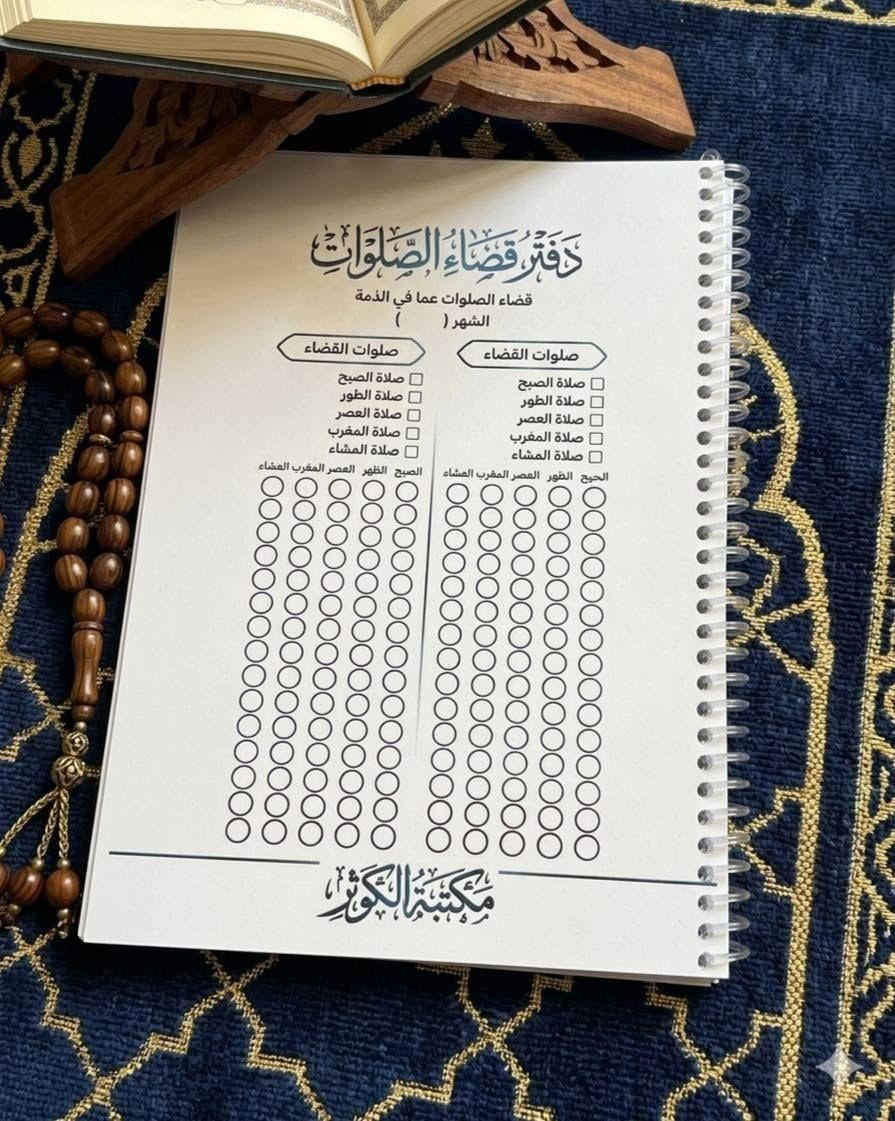 دَفتَرُ قَضَاءِ الصَّلَوَاتِ
قضاء الصلوات عما في الذمة
الشهر (        )
صلوات القضاء
صلاة الصبح
صلاة الطور
صلاة العصر
صلاة المغرب
صلاة المشاء
الحيح الظهر العصر المقرب العشاء
صلوات القضاء
صلاة الصبح
صلاة الطور
صلاة العصر
صلاة المغرب
صلاة المشاء
الصبح الظهر العصر المغرب العشاء
مَكتَبَةُ الكَوثَرِ